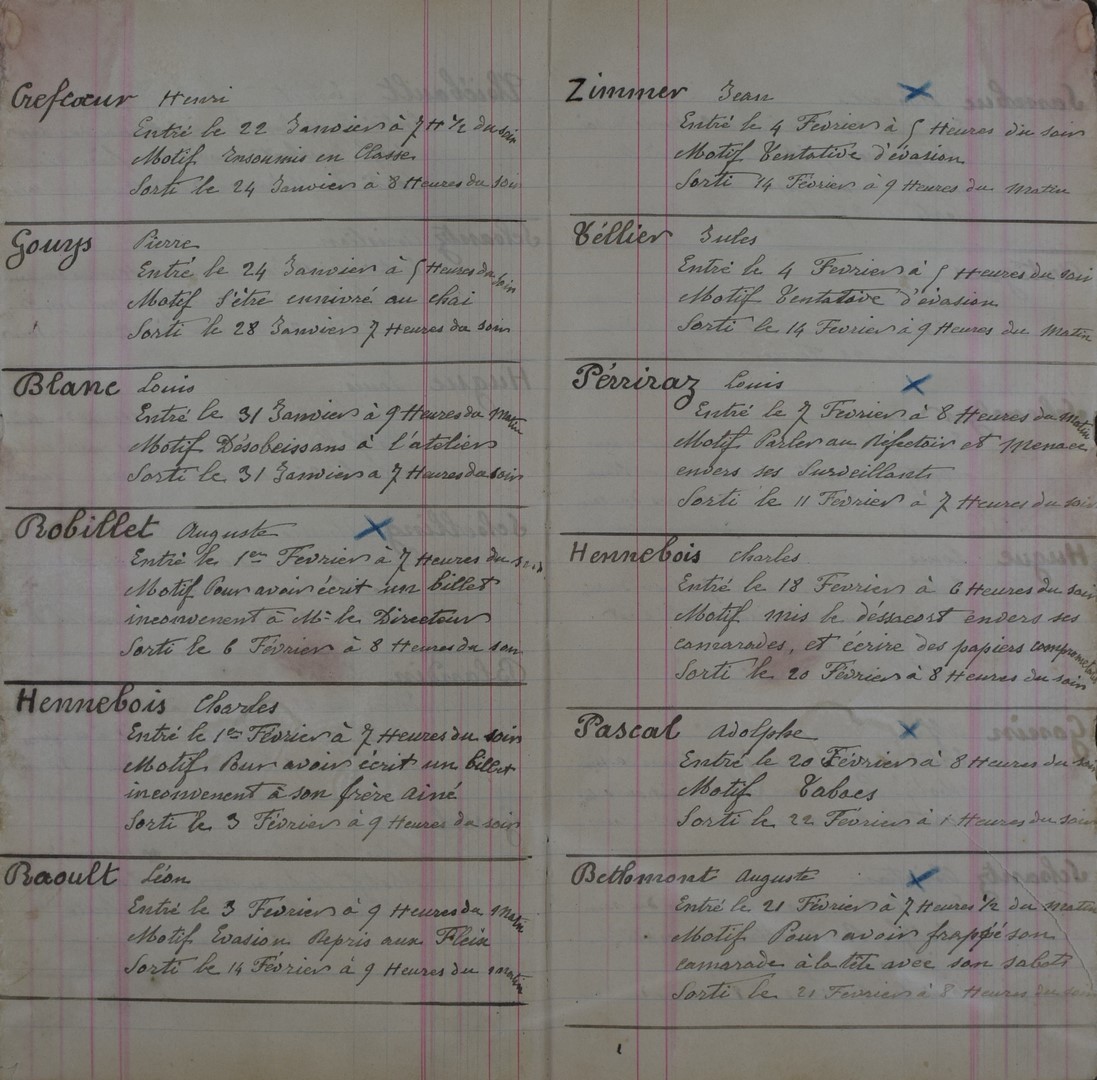 Crefcœur Henri
Entré le 22 Janvier à 7 H ½ du soir
Motif Insoumis en Classe
Sorti le 24 Janvier à 8 Heures du soir
Gouys Pierre
Entré le 24 Janvier à 5 Heures du soir
Motif S'être ennivré au chai
Sorti le 28 Janvier 7 Heures du soir
Blanc Louis
Entré le 31 Janvier à 9 Heures du Matin
Motif Désobeissans à l'atelier
Sorti le 31 Janvier a 7 Heures du soir
Robillet Auguste
Entré le 1er Fevrier à 7 Heures du soir
Motif Pour avoir écrit un billet
inconvenent à Mr le Directeur
Sorti le 6 Février à 8 Heures du soir
Hennebois Charles
Entré le 1er Février à 7 Heures du soir
Motif Pour avoir écrit un billet
inconvenent à son frère ainé
Sorti le 3 Février à 9 Heures du soir
Raoult Léon
Entré le 3 Février à 9 Heures du Matin
Motif Evasion Repris aux Fleix
Sorti le 14 Février à 9 Heures du matin
Zimmer Jean
Entré le 4 Fevrier à 5 Heures du soir
Motif Tentative d'évasion
Sorti 14 Février à 9 Heures du Matin
Téllier Jules
Entré le 4 Fevrier à 5 Heures du soir
Motif Tentative d'évasion
Sorti le 14 Février à 9 Heures du Matin
Pérriraz Louis
Entré le 7 Fevrier à 8 Heures du Matin
Motif Parler au Réfectoir et Menace
envers ses Surveillants
Sorti le 11 Février à 7 Heures du soir
Hennebois Charles
Entré le 18 Fevrier à 6 Heures du soir
Motif mis le déssacort envers ses
camarades, et écrire des papiers
Sorti le 20 Février à 8 Heures du soir
Pascal Adolphe
Entré le 20 Février à 8 Heures du soir
Motif Tabacs
Sorti le 22 Février à 1 Heures du soir
Bethomont Auguste
Entré le 21 Février à 7 Heures ½ du Matin
Motif Pour avoir frappé son
camarade à la tête avec son sabots
Sorti le 21 Fevrier à 8 Heures du soir